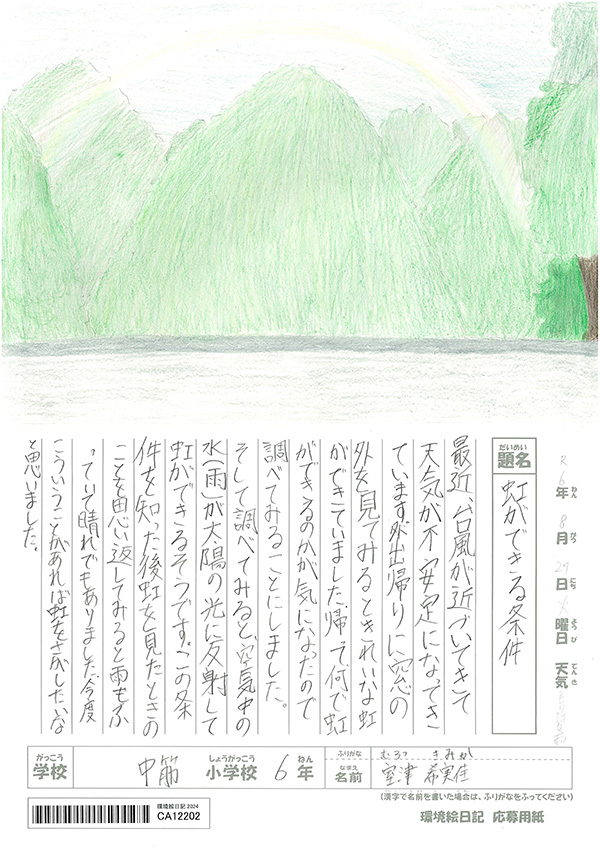 R6年 8月 29日 曜日 天気
ねん がつ にち ようび てんき
だいめい
題名 虹ができる条件
最近、台風が近づいてきて
天気が不安定になってき
ています。外出帰りに窓の
外を見てみるときれいな虹
ができていました。帰って、何で虹
ができるのかが気になったので
調べてみることにしました。
そして調べてみると、空気中の
水(雨)が太陽の光に反射して
虹ができるそうです。この条
件を知った後虹を見たときの
ことを思い返してみると雨もふ
っていて晴れでもありました。今度
こういうことがあれば虹をさがしたいな
と思いました。
がっこう しょうがっこう ねん
学校 中筋 小学校 6年
ふりがな むろつ きみか
なまえ
名前 室津 希実佳
(漢字で名前を書いた場合は、ふりがなをふってください)
環境絵日記 2024
CA12202
環境絵日記 応募用紙